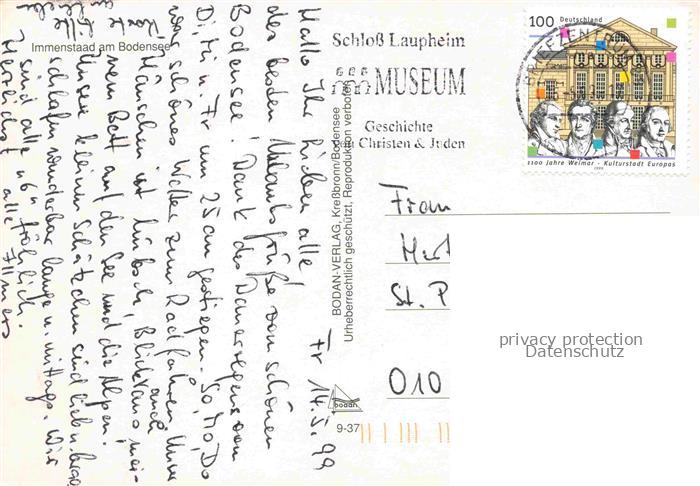 Immenstaad am Bodensee
Fr 14.5.99
Hallo Ihr Lieben alle!
der beiden Urlaubsgrüße vom schönen
Bodensee! Dank des Dauerregens vom
Di, Mi u. Fr um 25 cm gestiegen. So, Mo, Do
war schönes Wetter zum Radfahren. Unser
Häuschen ist hübsch, Blick aus mei-
nem Bett auf den See und die Alpen.
Unsere kleinen Schätzchen sind lieb u.
schlafen wunderbar lange u. mittags. Wir
sind alle fröhlich.
Herzlichst alle
BODAN-VERLAG, Kreßbronn/Bodensee
Urheberrechtlich geschützt, Reproduktion verboten
bodan
9-37
Schloß Laupheim
MUSEUM
Geschichte
von Christen & Juden
100 Deutschland
BRIEFZENTRUM
1100 Jahre Weimar - Kulturstadt Europas
1999
St. P
010
privacy protection
Datenschutz